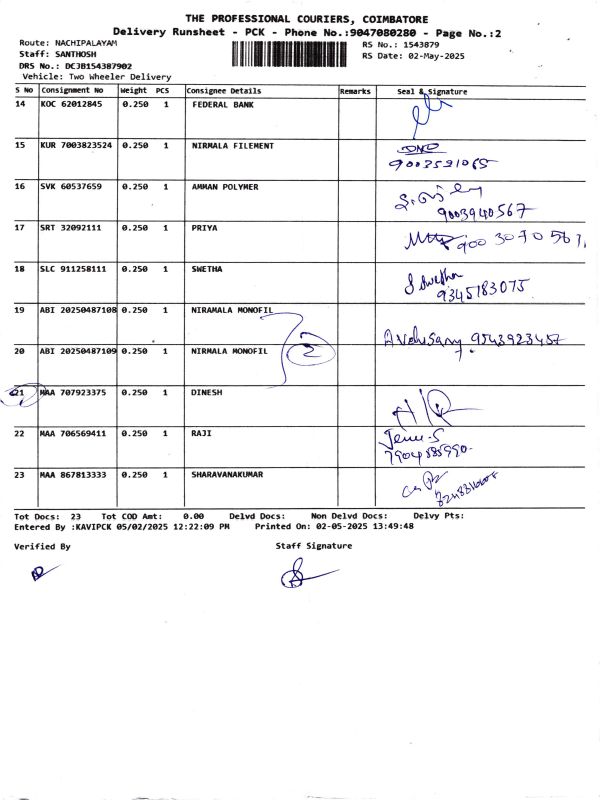 THE PROFESSIONAL COURIERS, COIMBATORE
Delivery Runsheet - PCK - Phone No.:9047080280 - Page No.:2
Route: NACHIPALAYAM
RS No.: 1543879
Staff: SANTHOSH
RS Date: 02-May-2025
DRS No.: DCJB154387902
Vehicle: Two Wheeler Delivery
S No Consignment No Weight PCS Consignee Details Remarks Seal & Signature
14 KOC 62012845 0.250 1 FEDERAL BANK
15 KUR 7003823524 0.250 1 NIRMALA FILEMENT
9003591065
16 SVK 60537659 0.250 1 AMMAN POLYMER
9003940567
17 SRT 32092111 0.250 1 PRIYA
900 3070 567
18 SLC 911258111 0.250 1 SWETHA
Swetha
9345183075
19 ABI 20250487108 0.250 1 NIRAMALA MONOFIL
9543923457
20 ABI 20250487109 0.250 1 NIRMALA MONOFIL 2
21 MAA 707923375 0.250 1 DINESH
22 MAA 706569411 0.250 1 RAJI
23 MAA 867813333 0.250 1 SHARAVANAKUMAR
Tot Docs: 23 Tot COD Amt: 0.00 Delvd Docs: Non Delvd Docs: Delvy Pts:
Entered By :KAVIPCK 05/02/2025 12:22:09 PM Printed On: 02-05-2025 13:49:48
Verified By Staff Signature